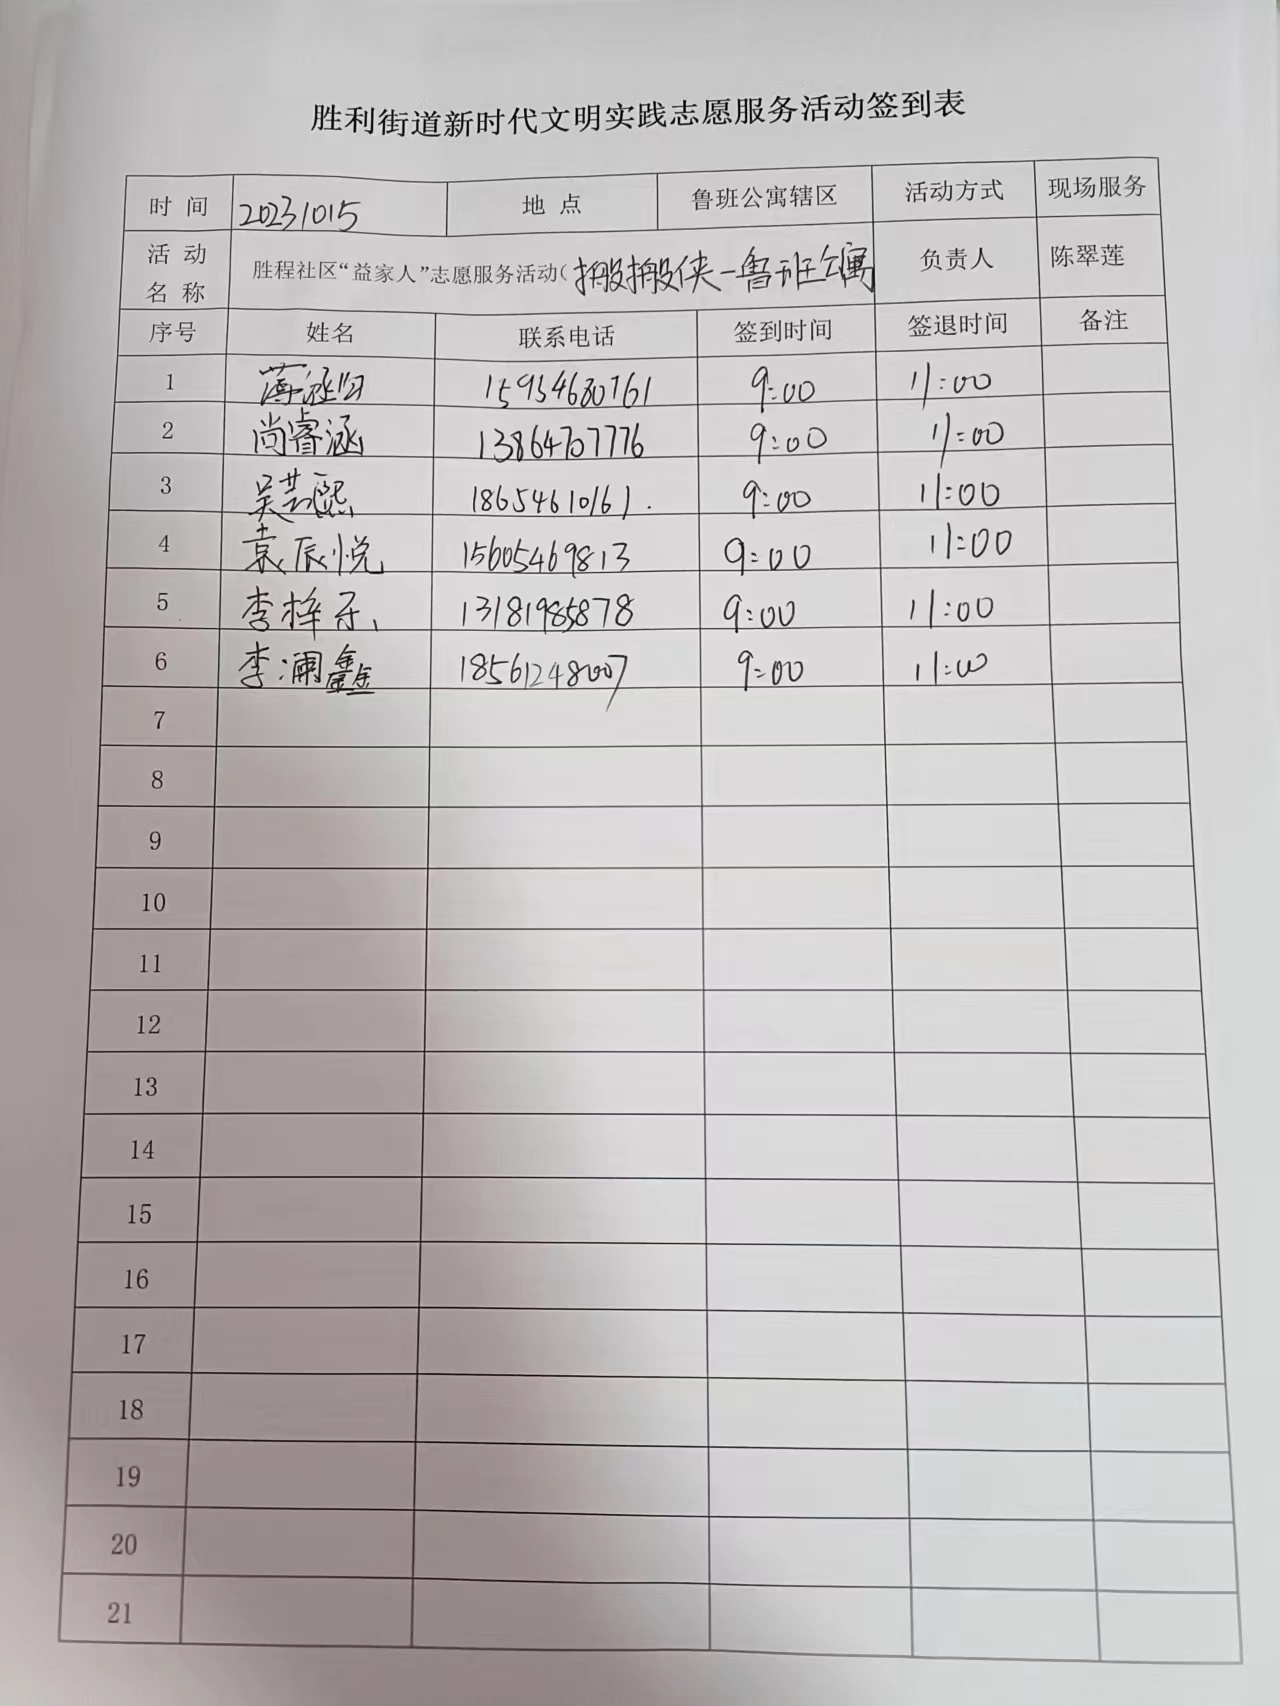 胜利街道新时代文明实践志愿服务活动签到表
时 间 20231015 地 点 鲁班公寓辖区 活动方式 现场服务
活 动 名 称 胜程社区“益家人”志愿服务活动( 搬搬侠-鲁班公寓 负责人 陈翠莲
序号 姓名 联系电话 签到时间 签退时间 备注
1 15954680761 9:00 11:00
2 尚睿涵 13864707776 9:00 11:00
3 吴芸熙 18654610161. 9:00 11:00
4 袁辰悦 15605469813 9:00 11:00
5 李梓 13181985878 9:00 11:00
6 李澜鑫 18561248007 9:00 11:00
7
8
9
10
11
12
13
14
15
16
17
18
19
20
21